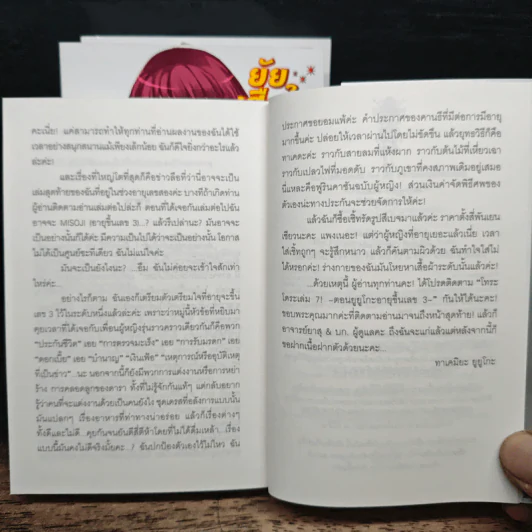 ยัย
คะเนี่ย! แต่สามารถทำให้ทุกท่านที่อ่านผลงานของฉันได้ใช้
เวลาอย่างสนุกสนานแม้เพียงเล็กน้อย ฉันก็ดีใจยิ่งกว่าอะไรแล้ว
ล่ะค่ะ!
และเรื่องที่ใหญ่โตที่สุดก็คือข่าวลือที่ว่านี่อาจจะเป็น
เล่มสุดท้ายของฉันที่อยู่ในช่วงอายุเลขสองค่ะ บางทีถ้าเกิดท่าน
ผู้อ่านติดตามอ่านเล่มต่อไปล่ะก็ ตอนที่ได้เจอกันเล่มต่อไปฉัน
อาจจะ MISOJI (อายุขึ้นเลข 3)...? แล้วรึเปล่านะ? มันอาจจะ
เป็นอย่างนั้นก็ได้ค่ะ มีความเป็นไปได้ว่าจะเป็นอย่างนั้น โอกาส
ไม่ได้เป็นศูนย์ซะทีเดียว ฉันไม่แน่ใจค่ะ
มันจะเป็นยังไงนะ? ...อืม ฉันไม่ค่อยจะเข้าใจสักเท่า
ไหร่ค่ะ...
อย่างไรก็ตาม ฉันเองก็เตรียมตัวเตรียมใจที่อายุจะขึ้น
เลข 3 ไว้ในระดับหนึ่งแล้วค่ะ เพราะว่าหมู่นี้หัวข้อที่หยิบมา
คุยเวลาที่ได้เจอกับเพื่อนผู้หญิงรุ่นราวคราวเดียวกันก็คือพวก
"ประกันชีวิต" เอย "การตรวจมะเร็ง" เอย "การรับมรดก" เอย
"ดอกเบี้ย" เอย "บำนาญ" "เงินเฟ้อ" "เหตุการณ์หรืออุบัติเหตุ
ที่เป็นข่าว"...นะ นอกจากนี้ก็ยังมีพวกการแต่งงานหรือการหย่า
ร้าง การคลอดลูกของดารา ทั้งที่ไม่รู้จักกันแท้ๆ แต่กลับอยาก
รู้ว่าคนที่จะแต่งงานด้วยเป็นคนยังไง ชุดเดรสที่อลังการแบบนั้น
มันแปลกๆ เรื่องอาหารที่ท่าทางน่าอร่อย แล้วก็เรื่องต่างๆ
ทั้งดีและไม่ดี คุยกันจนยันตีสี่ตีห้าโดยที่ไม่ได้ดื่มเหล้า เรื่อง
แบบนี้มันคงไม่ดีจริงมั้ยคะ...? ฉันปกป้องตัวเองไว้ไม่ไหว ฉัน
ประกาศขอยอมแพ้ค่ะ คำประกาศของคานธีที่มีต่อการมีอายุ
มากขึ้นค่ะ ปล่อยให้เวลาผ่านไปโดยไม่ขัดขืน แล้วยุทธวิธีก็คือ
ทาเคดะค่ะ ราวกับสายลมที่แห้งผาก ราวกับต้นไม้ที่เหี่ยวเฉา
ราวกับเปลวไฟที่มอดดับ ราวกับภูเขาที่คงสภาพเดิมอยู่เสมอ
นี่แหละคือฟูรินคาซันฉบับผู้หญิง! ส่วนเงินค่าจัดพิธีศพของ
ตัวเองน่ะทางประกันจะช่วยจัดการให้ค่ะ!
แล้วฉันก็ซื้อเซ็ทรัดรูปสีเบจมาแล้วค่ะ ราคาตั้งสี่พันเยน
เชียวนะคะ แพงเนอะ! แต่ว่าผู้หญิงที่อายุเยอะแล้วเนี่ย เวลา
ใส่เซ็ทถูกๆ จะรู้สึกหนาว แล้วก็คันตามผิวด้วย ฉันทำใจใส่ไม่
ได้หรอกค่ะ! ร่างกายของฉันมันโหยหาเสื้อผ้าระดับนั้นแล้วค่ะ!
...ด้วยเหตุนี้ ผู้อ่านทุกท่านคะ! ได้โปรดติดตาม "โทระ
โดระเล่ม 7! -ตอนยูยูโกะอายุขึ้นเลข 3-" กันให้ได้นะคะ!
ขอบพระคุณมากค่ะที่ติดตามอ่านมาจนถึงหน้าสุดท้าย! แล้วก็
อาจารย์ยาสุ & บก. ผู้ดูแลคะ ถึงฉันจะแก่แล้วแต่หลังจากนี้ก็
ขอฝากเนื้อฝากตัวด้วยนะคะ...
ทาเคมิยะ ยูยูโกะ